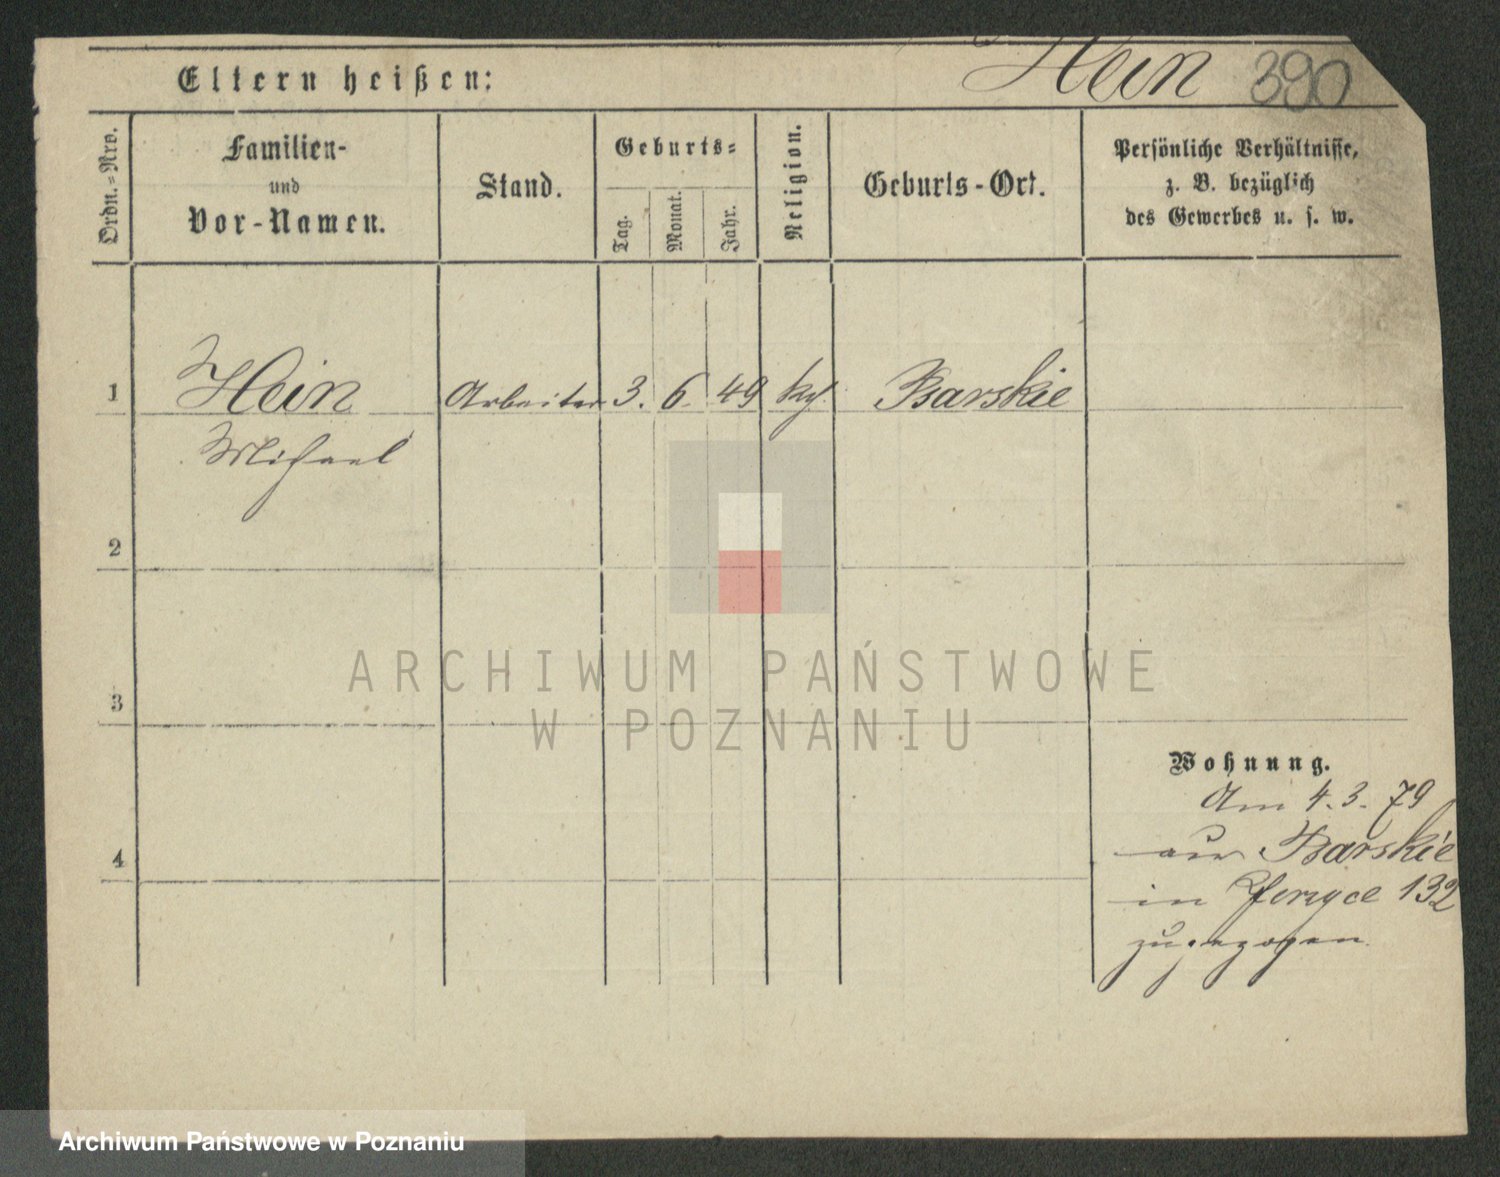 Eltern heißen: Hein 390
Ordn.=Nro.
Familien-
und
Vor-Namen.
Stand.
Geburts=
Tag.
Monat.
Jahr.
Religion.
Geburts-Ort.
Persönliche Verhältnisse,
z. B. bezüglich
des Gewerbes u. s. w.
1 Hein Arbeiter 3. 6. 49 Barskie
Michael
2
3
4
ARCHIWUM PAŃSTWOWE
W POZNANIU
Wohnung.
Am 4. 3. 79
aus Barskie
in 132
zugezogen.
Archiwum Państwowe w Poznaniu